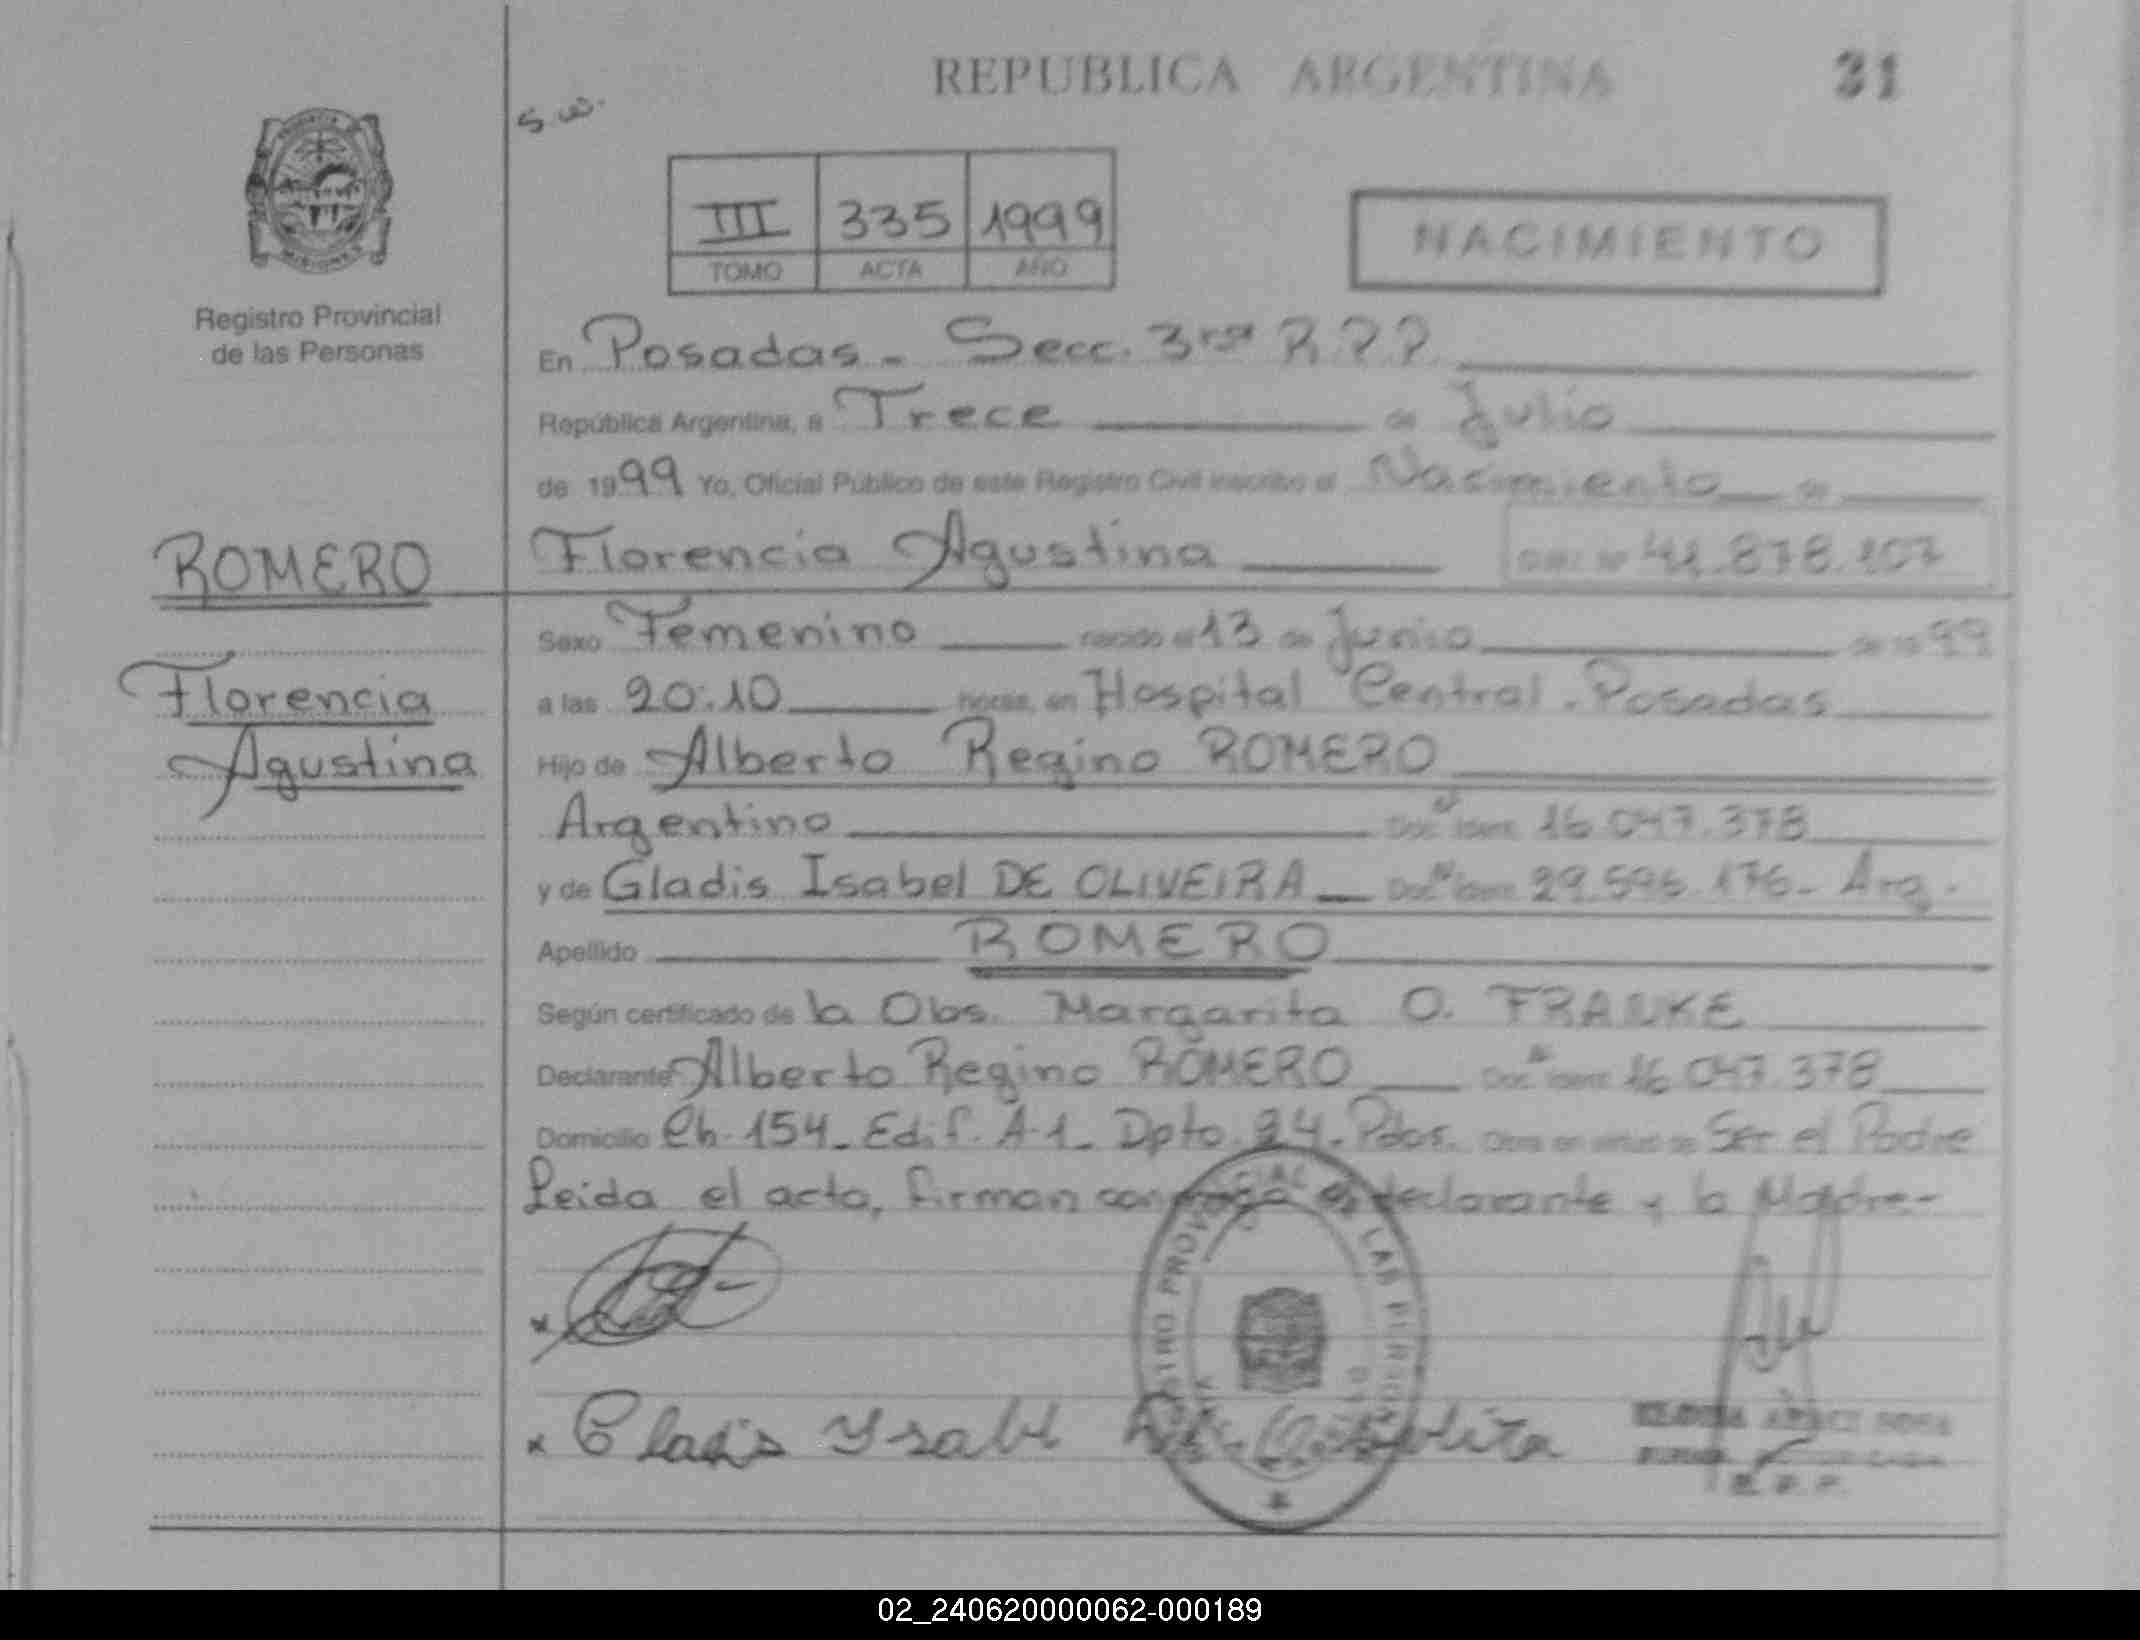 REPUBLICA ARGENTINA 31
S.W.
III 335 1999
TOMO ACTA AÑO
NACIMIENTO
Registro Provincial
de las Personas
En Posadas - Secc. 3ra R.P.P.
República Argentina, a Trece de Julio
de 1999 Yo, Oficial Público de este Registro Civil inscribo el Nacimiento de
ROMERO
Florencia Agustina 41.878.107
Sexo Femenino nacido el 13 de Junio de 1999
Florencia
a las 20:10 horas, en Hospital Central - Posadas
Agustina
Hijo de Alberto Regino ROMERO
Argentino Doc. Ident. 16.047.378
y de Gladis Isabel DE OLIVEIRA Doc. Ident. 29.595.176 - Arg.
Apellido ROMERO
Según certificado de la Obs. Margarita O. FRANKE
Declarante Alberto Regino ROMERO Doc. Ident. 16.047.378
Domicilio Ch. 154 - Edif. A-1 - Dpto. 24 - Pdas. Obra en virtud de Ser el Padre
Leida el acta, firman conmigo el declarante y la Madre -
REGISTRO PROVINCIAL DE LAS PERSONAS
x Gladis Ysabel
R.P.P.
02_240620000062-000189